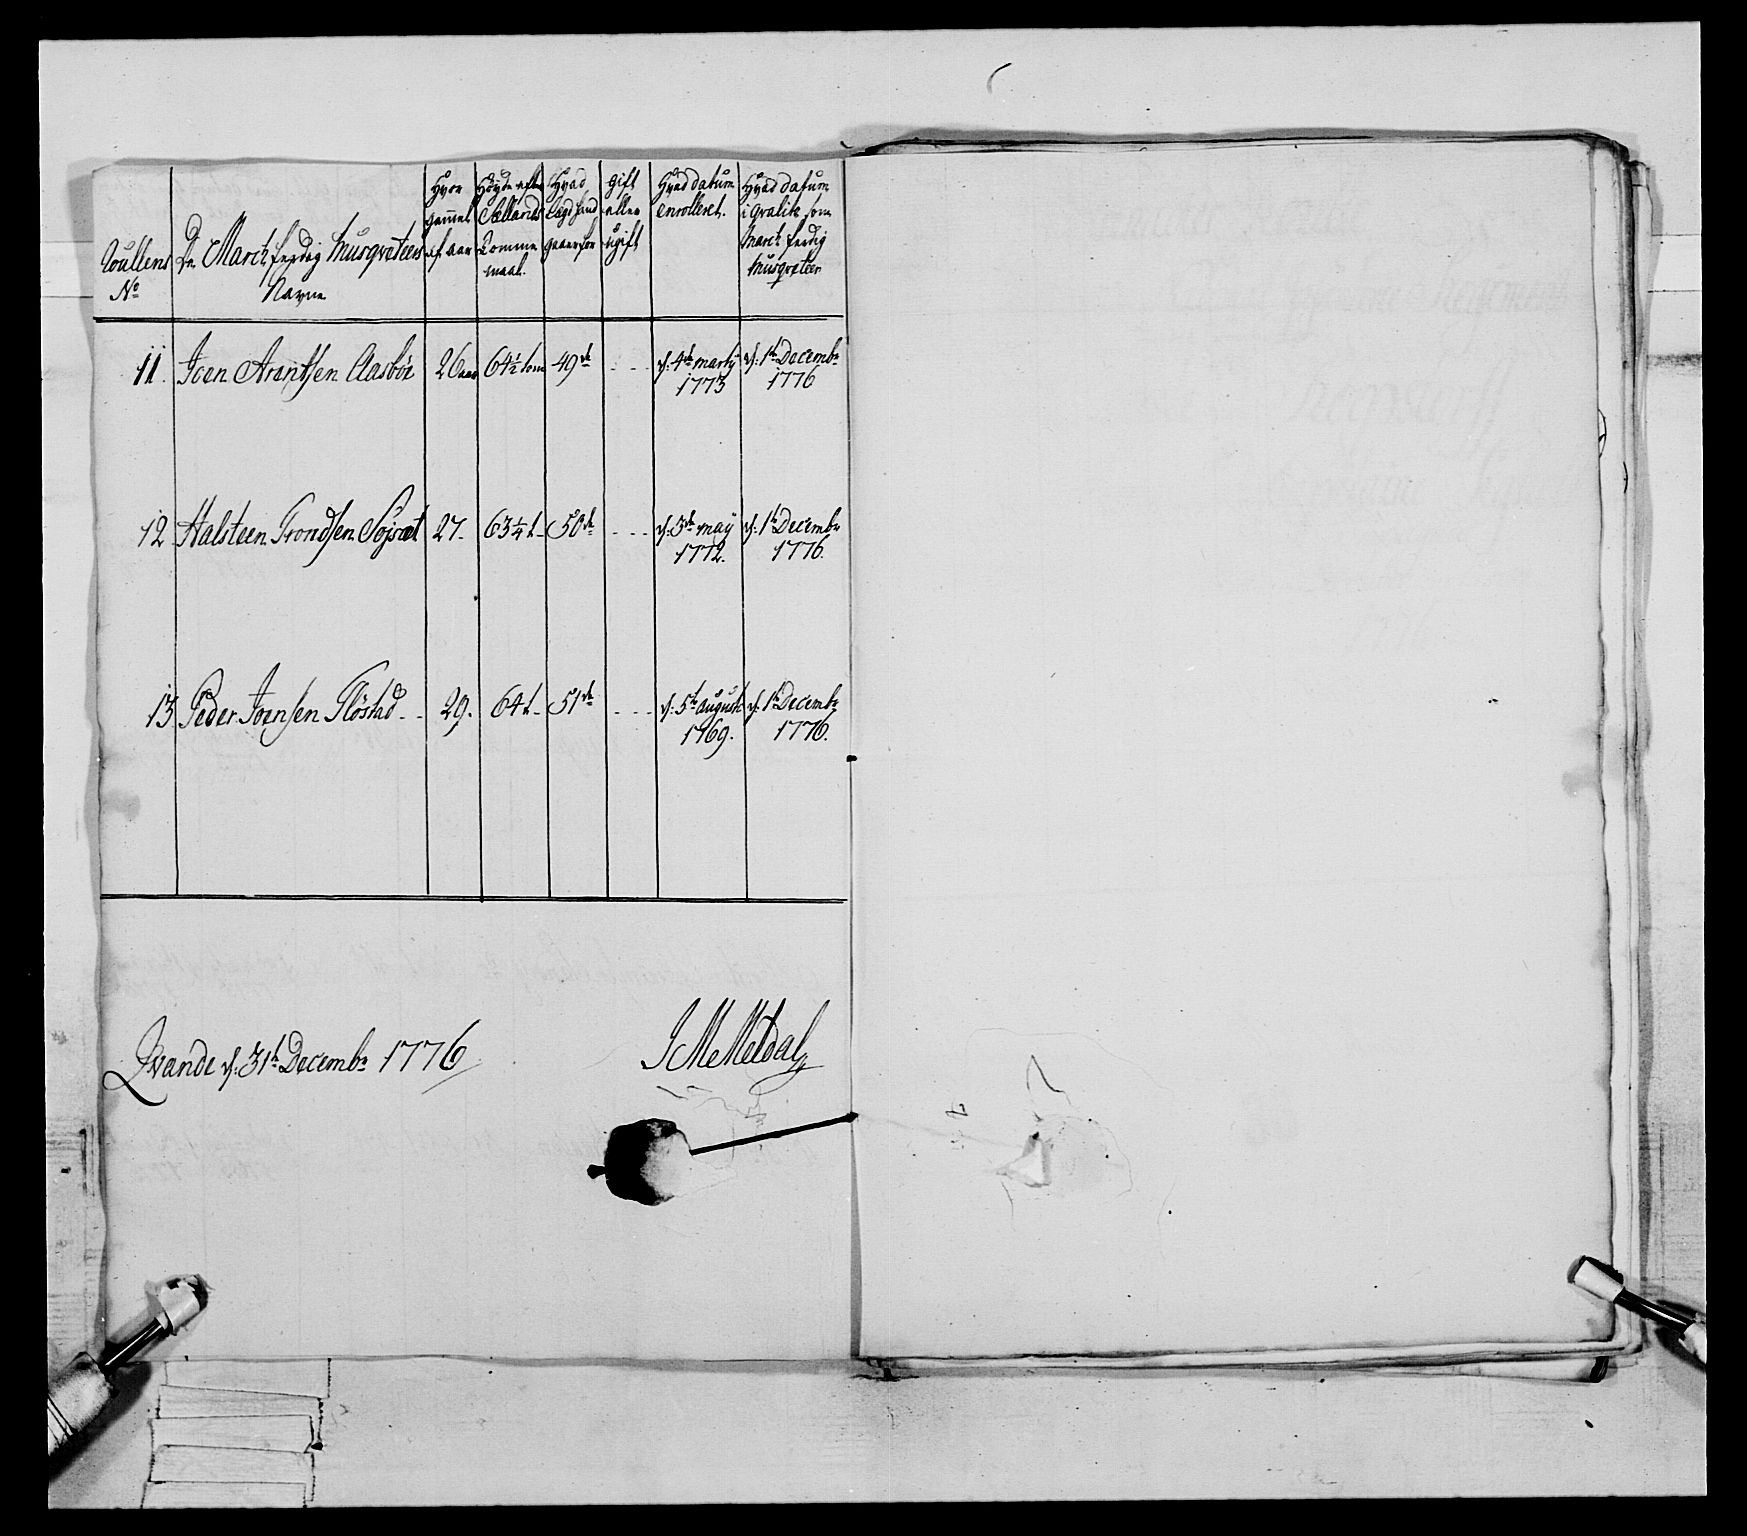 Roullens
No
De March færdig Musqveteers
Navne
Hvor
gammel
af aar
Høyde efter
Sællands
Tomme
maal.
Hvad
Lægd hand
staaer for
gift
eller
ugift
Hvad datum
enrolleret.
Hvad datum
i qvalite som
March færdig
Musqveteer
11. Joen Arentsen Aasböe 26 aar 64½ tom 49de - - - d: 4de marty d: 1te Decembr
1773 1776
12 Halsteen Trondsen Söjset 27. 63¼ t. 50de - - - d: 3de may d: 1te Decembr
1772. 1776.
13 Peder Joensen Flöstad - - 29. 64 t. 51de - - - d: 5te august d: 1te Decembr
1769. 1776.
Qvande d: 31te Decembr 1776
JMeMeldal